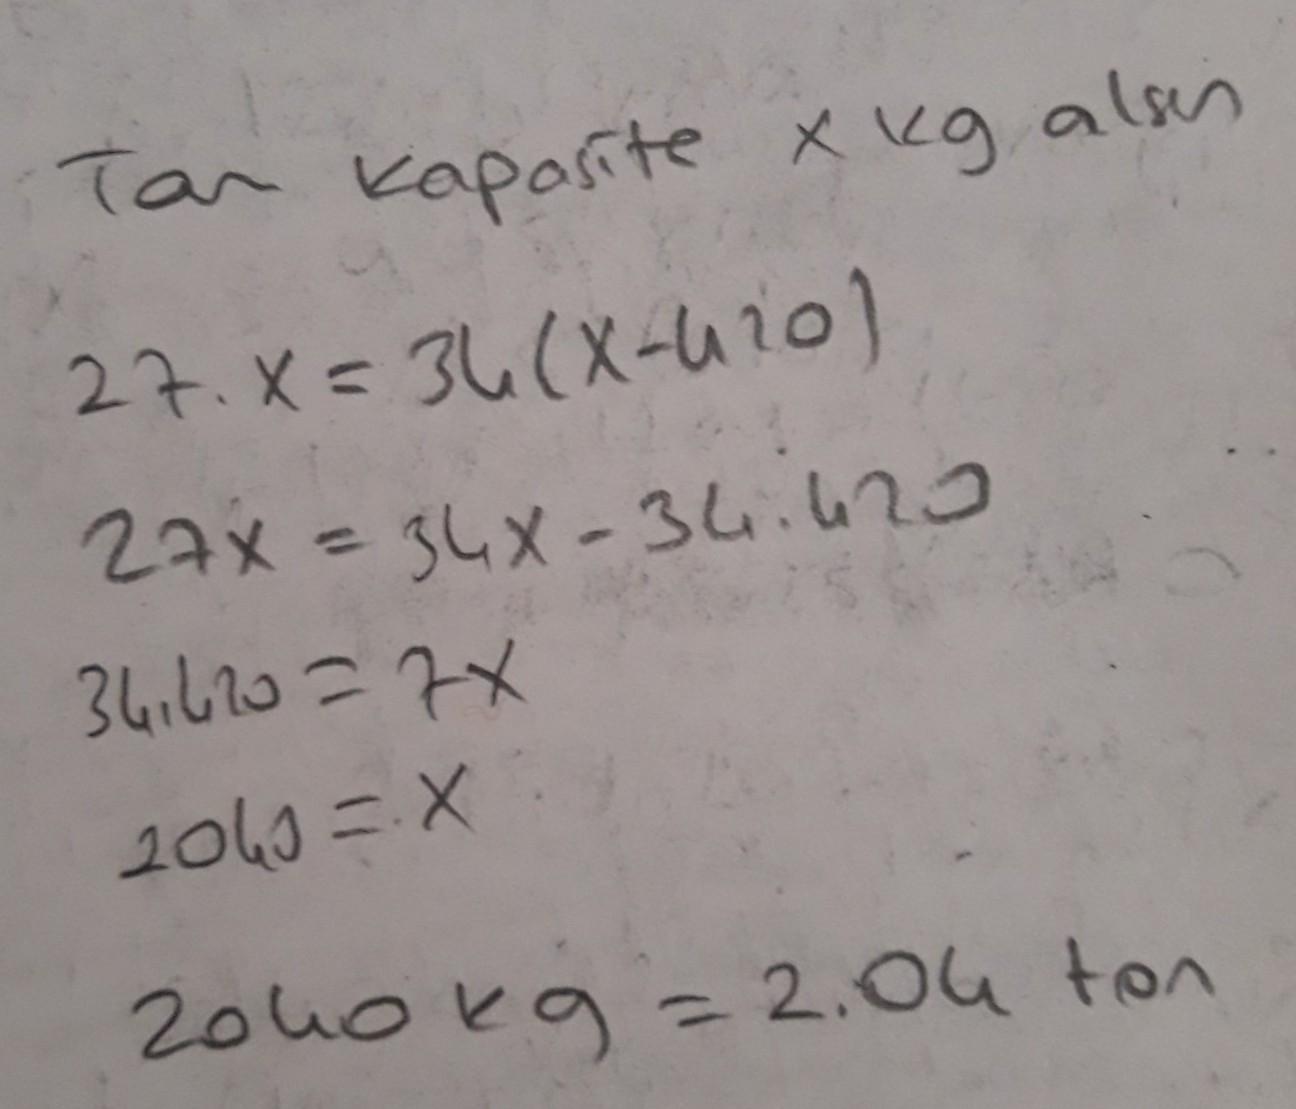 Tam kapasite x kg alsın
27. x = 34(x-420)
27x = 34x - 34.420
34.420 = 7x
2040 = x
2040 kg = 2.04 ton